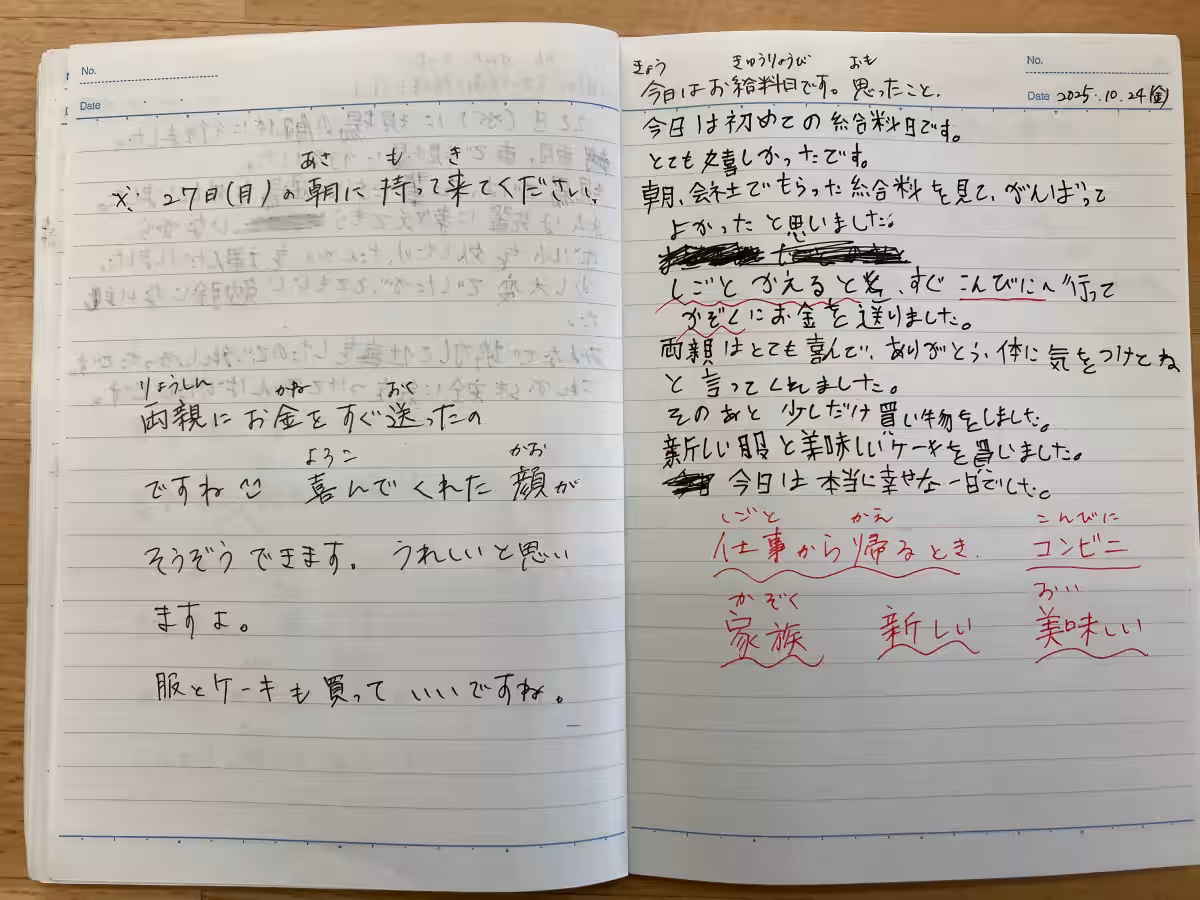 No.
Date
あさ も き
※ 27日(月)の朝に持って来てください。
りょうしん かね おく
両親にお金をすぐ送ったの
よろこ かお
ですね 喜んでくれた顔が
そうぞうできます。うれしいと思い
ますよ。
服とケーキも買っていいですね。
きょう きゅうりょうび おも
今日はお給料日です。思ったこと.
No.
Date 2025.10.24(金)
今日は初めての給料日です。
とても嬉しかったです。
朝、会社でもらった給料を見て、がんばって
よかったと思いました。
しごと かえると、すぐ こんびにへ行って
かぞくにお金を送りました。
両親はとても喜んで、ありがとう、体に気をつけてね
と言ってくれました。
そのあと 少しだけ買い物をしました。
新しい服と美味しいケーキを買いました。
今日は本当に幸せな一日でした。
しごと かえ こんびに
仕事から帰るとき. コンビニ
かぞく おい
家族 新しい 美味しい